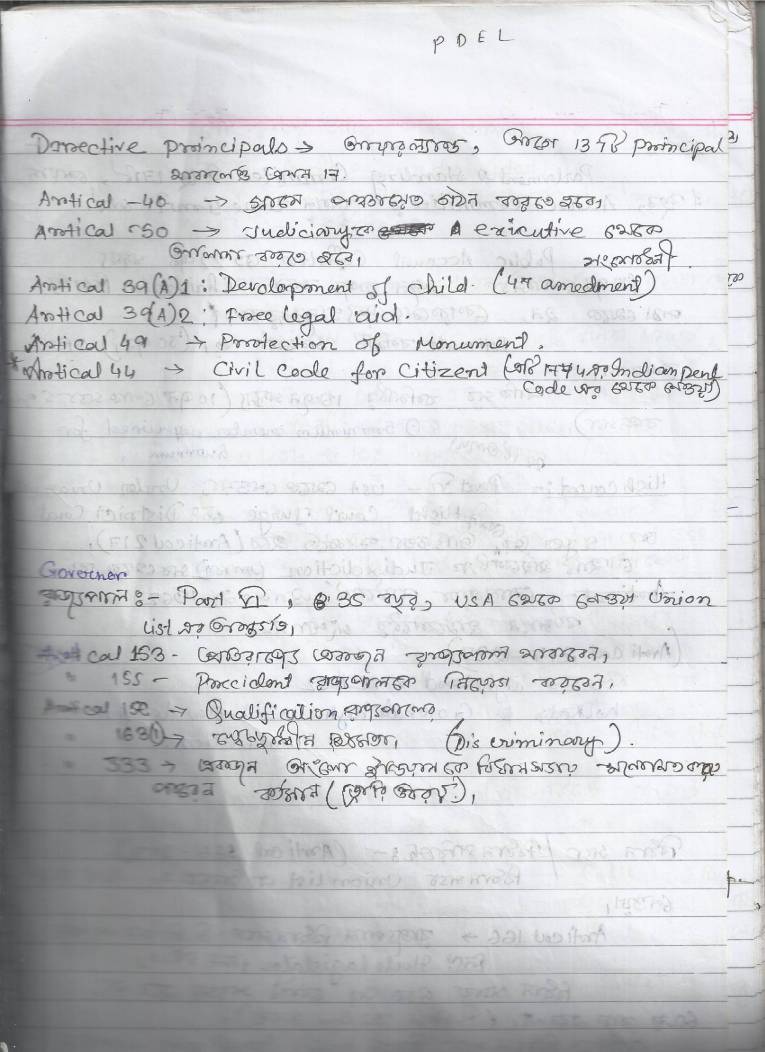 PDEL
Darective principals → আয়ারল্যান্ড, আগে 13 টি principal
Artical -40 → গ্রামে পঞ্চায়েত গঠন করতে হবে।
Artical -50 → Judiciaryকে executive থেকে
আলাদা করতে হবে। সংশোধনী
Artical 39(A)1: Development of child. (42 amedment)
Artical 39(A)2: Free legal aid.
Artical 49 → Protection of Monument.
* Artical 44 → Civil code for Citizent ( Indian penl
Code এর থেকে নেওয়া)
Governer
রাজ্যপাল ঃ- Part VI, 35 বছর, USA থেকে নেওয়া Union
list এর অন্তর্গত।
Artical 153 - প্রতিরাজ্যে একজন রাজ্যপাল থাকবেন।
" 155 - Preccident রাজ্যপালকে নিয়োগ করবেন।
Artical 158 → Qualification রাজ্যপালের
" 163(1) → স্বেচ্ছাধীন ক্ষমতা। (Discriminary).
" 333 → একজন অংলো ইন্ডিয়ান কে বিধানসভায় মনোনয়ত করতে
পারেন বর্তমান